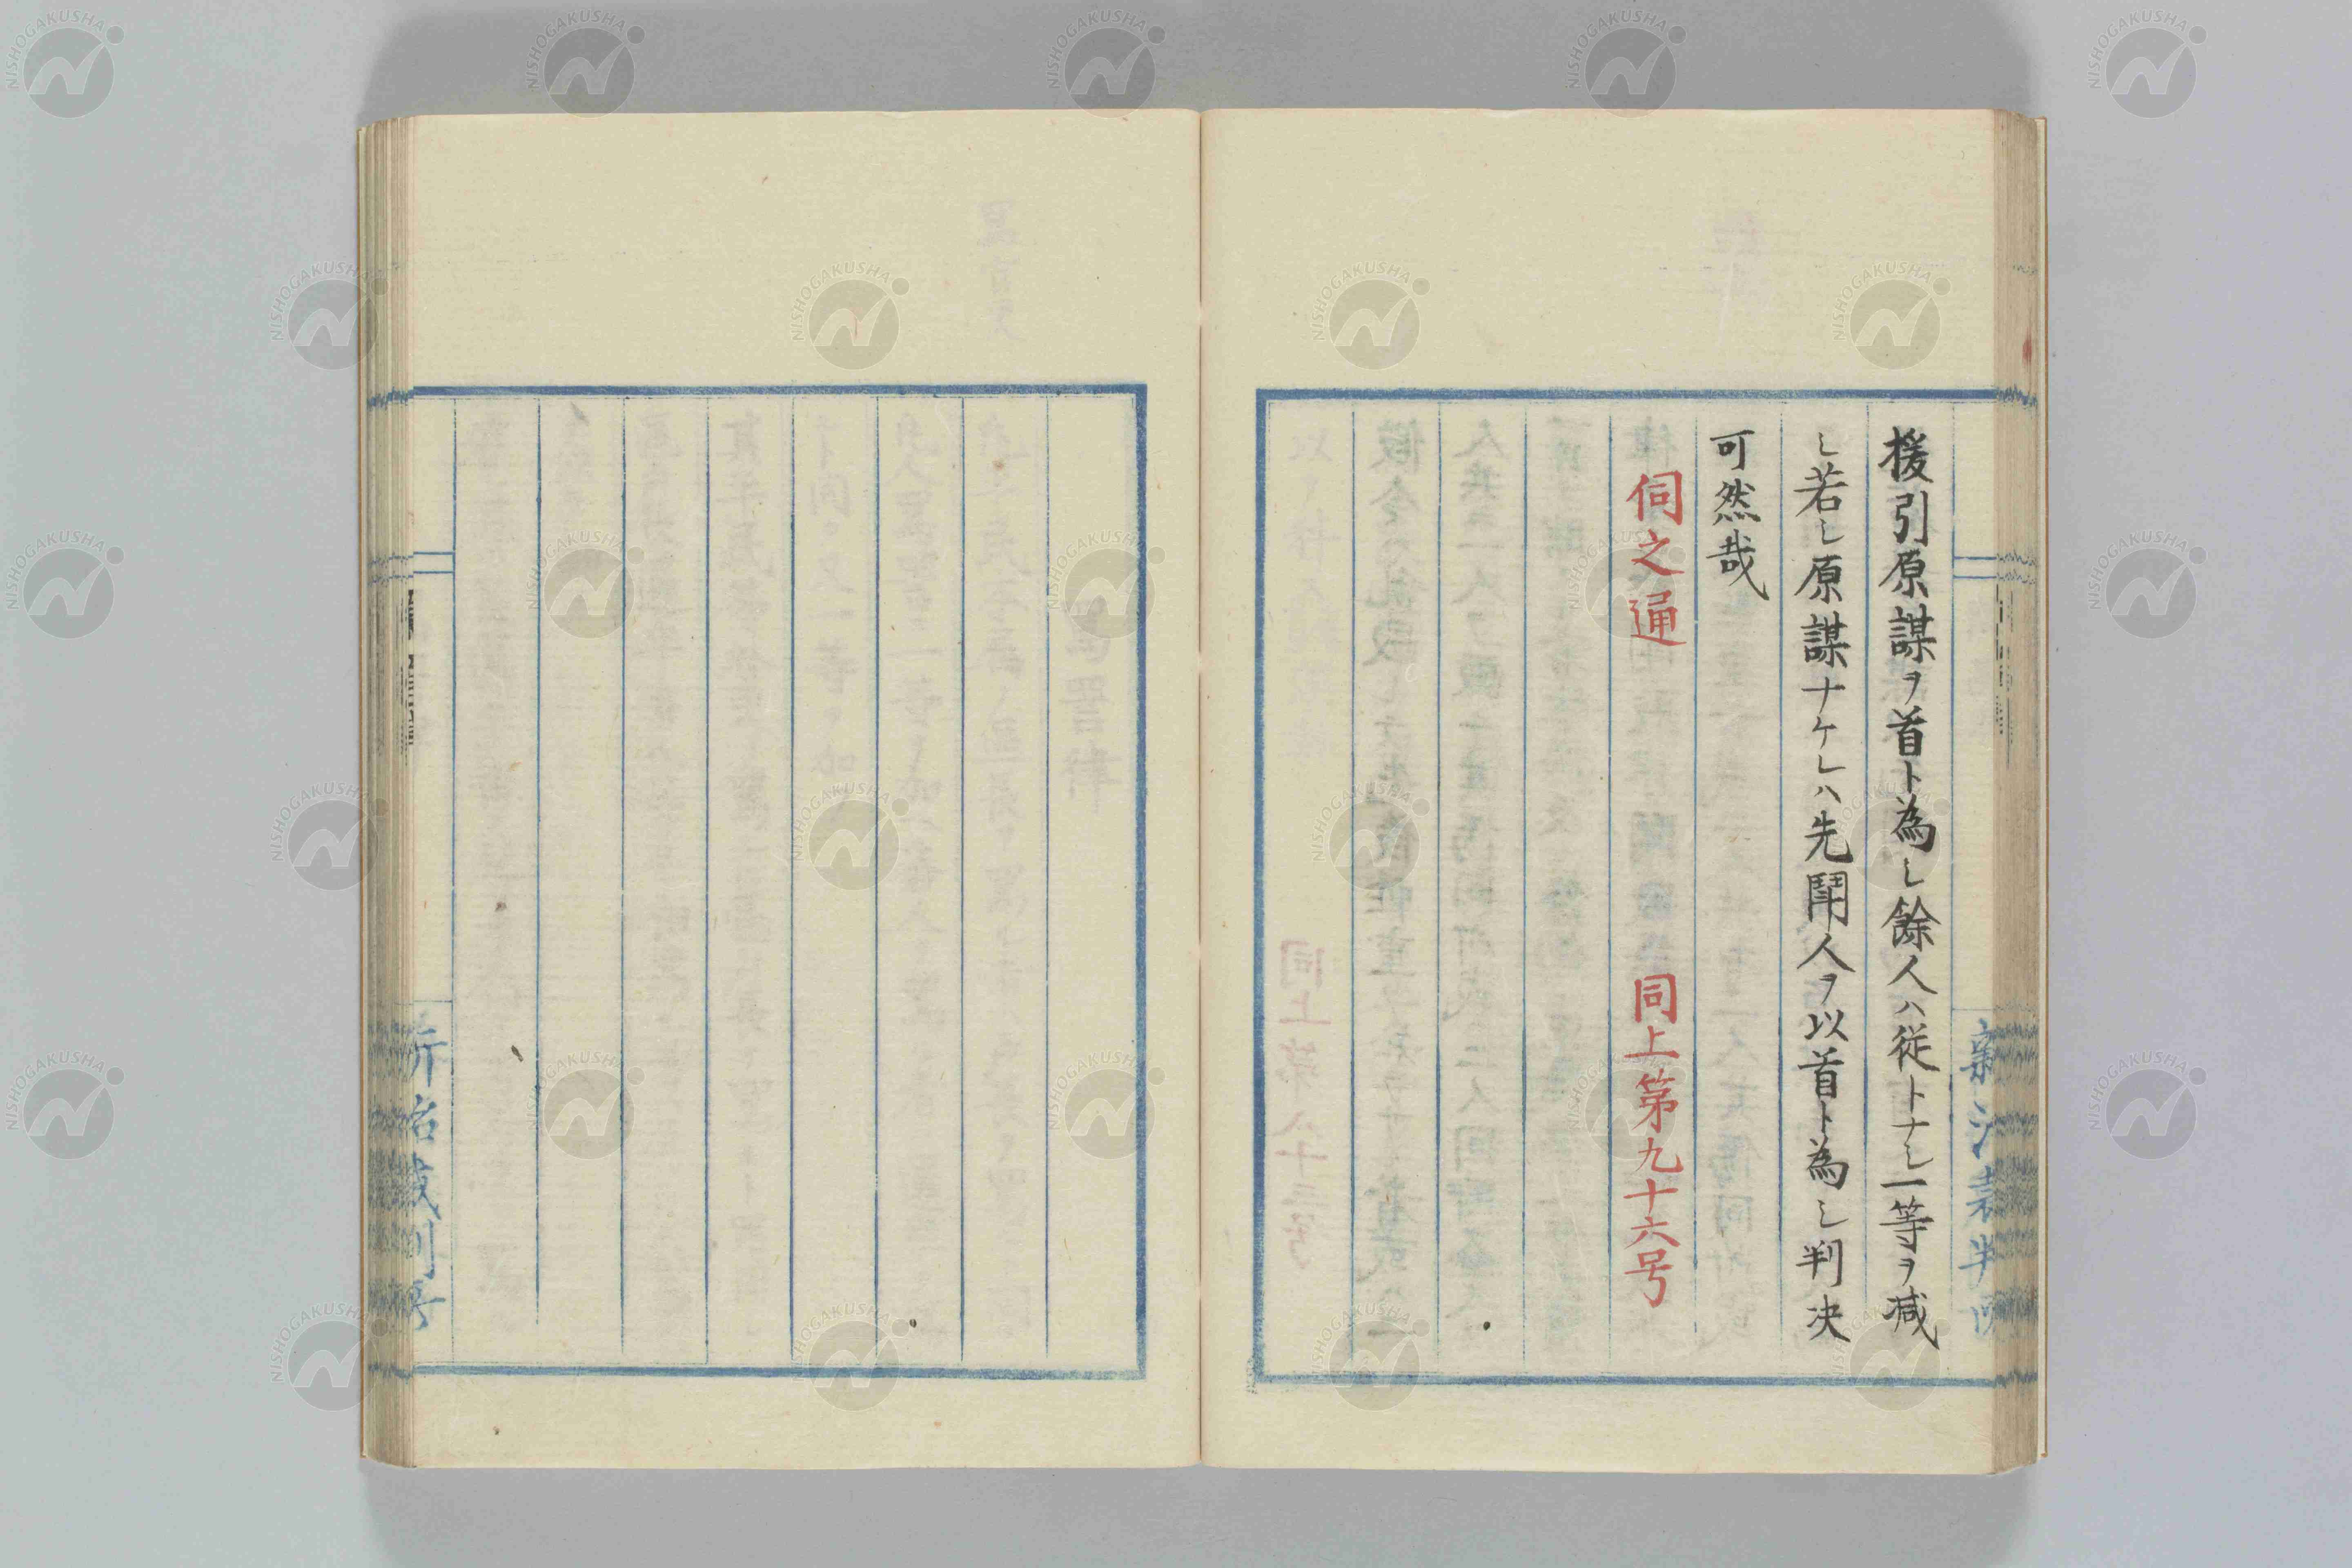 援引原謀ヲ首ト為シ餘人ハ従トナシ一等ヲ減
シ若シ原謀ナケレハ先鬪人ヲ以首ト為シ判决
可然哉
伺之通 同上第九十六号